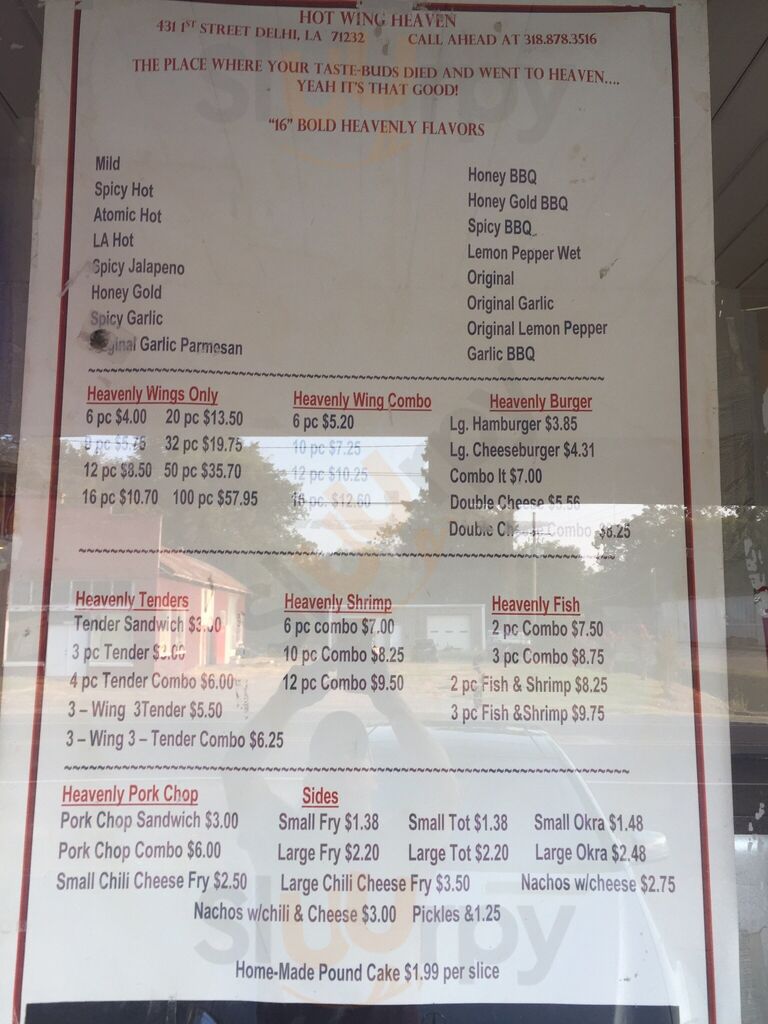 HOT WING HEAVEN
431 1ST STREET DELHI, LA 71232 CALL AHEAD AT 318.878.3516
THE PLACE WHERE YOUR TASTE-BUDS DIED AND WENT TO HEAVEN....
YEAH IT'S THAT GOOD!
"16" BOLD HEAVENLY FLAVORS
Mild
Spicy Hot
Atomic Hot
LA Hot
Spicy Jalapeno
Honey Gold
Spicy Garlic
Garlic Parmesan
Honey BBQ
Honey Gold BBQ
Spicy BBQ
Lemon Pepper Wet
Original
Original Garlic
Original Lemon Pepper
Garlic BBQ
Heavenly Wings Only
6 pc $4.00 20 pc $13.50
pc $5.75 32 pc $19.75
12 pc $8.50 50 pc $35.70
16 pc $10.70 100 pc $57.95
Heavenly Wing Combo
6 pc $5.20
10 pc $7.25
12 pc $10.25
16 pc. $12.60
Heavenly Burger
Lg. Hamburger $3.85
Lg. Cheeseburger $4.31
Combo It $7.00
Double Cheese $5.56
Double Cheese Combo $8.25
Heavenly Tenders
Tender Sandwich $3.00
3 pc Tender
4 pc Tender Combo $6.00
3 – Wing 3Tender $5.50
3 – Wing 3 – Tender Combo $6.25
Heavenly Shrimp
6 pc combo $7.00
10 pc Combo $8.25
12 pc Combo $9.50
Heavenly Fish
2 pc Combo $7.50
3 pc Combo $8.75
2 pc Fish & Shrimp $8.25
3 pc Fish &Shrimp $9.75
Heavenly Pork Chop Sides
Pork Chop Sandwich $3.00 Small Fry $1.38 Small Tot $1.38 Small Okra $1.48
Pork Chop Combo $6.00 Large Fry $2.20 Large Tot $2.20 Large Okra $2.48
Small Chili Cheese Fry $2.50 Large Chili Cheese Fry $3.50 Nachos w/cheese $2.75
Nachos w/chili & Cheese $3.00 Pickles &1.25
Home-Made Pound Cake $1.99 per slice